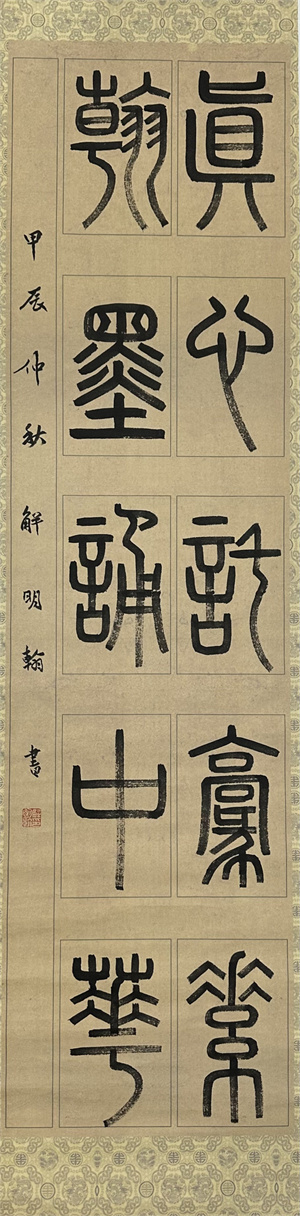 真心託豪素
翰墨誦中華
甲辰仲秋解明翰書